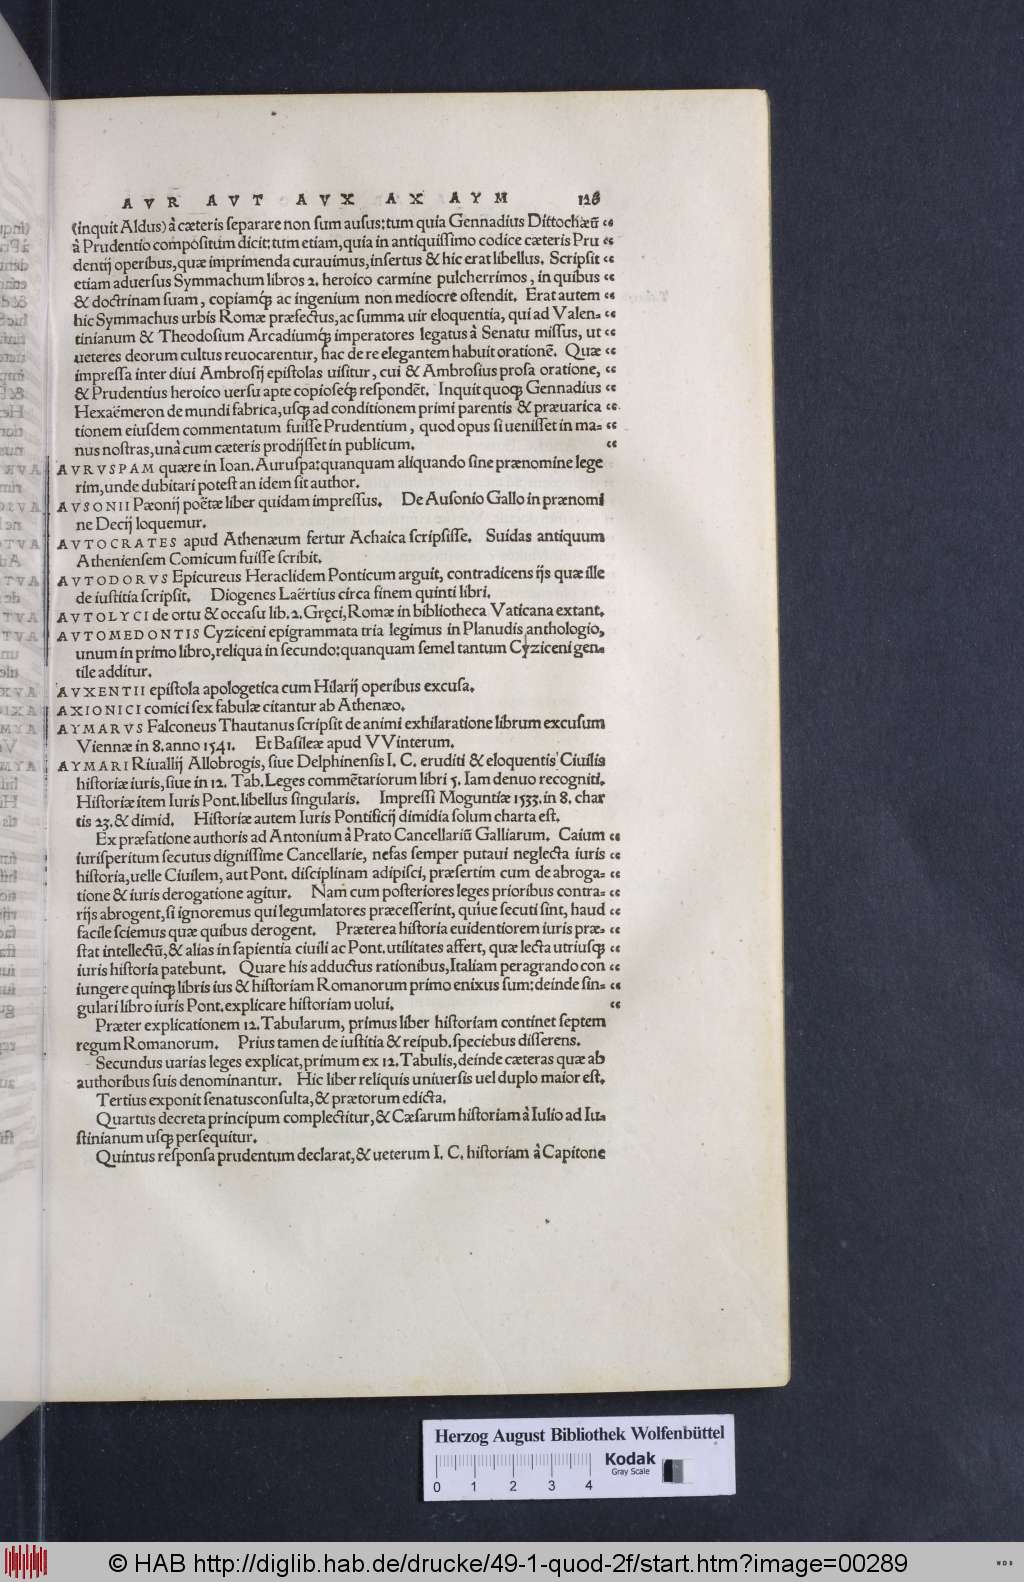 AVR AVT AVX AX AYM 128
(inquit Aldus) à cæteris separare non sum ausus: tum quia Gennadius Dittochæũ “
à Prudentio compositum dicit: tum etiam, quia in antiquissimo codice cæteris Pru “
dentij operibus, quæ imprimenda curauimus, insertus & hic erat libellus. Scripsit “
etiam aduersus Symmachum libros 2. heroico carmine pulcherrimos, in quibus “
& doctrinam suam, copiamq́ꝫ ac ingenium non mediocre ostendit. Erat autem “
hic Symmachus urbis Romæ præfectus, ac summa uir eloquentia, qui ad Valen= “
tinianum & Theodosium Arcadiumq́ꝫ imperatores legatus à Senatu missus, ut “
ueteres deorum cultus reuocarentur, hac de re elegantem habuit orationẽ. Quæ “
impressa inter diui Ambrosij epistolas uisitur, cui & Ambrosius prosa oratione, “
& Prudentius heroico uersu apte copioseq́ꝫ respondẽt. Inquit quoqꝫ Gennadius “
Hexaëmeron de mundi fabrica, usqꝫ ad conditionem primi parentis & præuarica “
tionem eiusdem commentatum fuisse Prudentium, quod opus si uenisset in ma= “
nus nostras, unà cum cæteris prodijsset in publicum. “
AVRVSPAM quære in Ioan. Auruspa: quanquam aliquando sine prænomine lege
rim, unde dubitari potest an idem sit author.
AVSONII Pæonij poëtæ liber quidam impressus. De Ausonio Gallo in prænomi
ne Decij loquemur.
AVTOCRATES apud Athenæum fertur Achaica scripsisse. Suidas antiquum
Atheniensem Comicum fuisse scribit.
AVTODORVS Epicureus Heraclidem Ponticum arguit, contradicens ijs quæ ille
de iustitia scripsit. Diogenes Laërtius circa finem quinti libri.
AVTOLYCI de ortu & occasu lib. 2. Gręci, Romæ in bibliotheca Vaticana extant.
AVTOMEDONTIS Cyziceni epigrammata tria legimus in Planudis anthologio,
unum in primo libro, reliqua in secundo: quanquam semel tantum Cyziceni gen=
tile additur.
AVXENTII epistola apologetica cum Hilarij operibus excusa.
AXIONICI comici sex fabulæ citantur ab Athenæo.
AYMARVS Falconeus Thautanus scripsit de animi exhilaratione librum excusum
Viennæ in 8. anno 1541. Et Basileæ apud VVinterum.
AYMARI Riuallij Allobrogis, siue Delphinensis I. C. eruditi & eloquentis Ciuilis
historiæ iuris, siue in 12. Tab. Leges commẽtariorum libri 5. Iam denuo recogniti.
Historiæ item Iuris Pont. libellus singularis. Impressi Moguntiæ 1533. in 8. char
tis 23. & dimid. Historiæ autem Iuris Pontificij dimidia solum charta est.
Ex præfatione authoris ad Antonium à Prato Cancellariũ Galliarum. Caium “
iurisperitum secutus dignissime Cancellarie, nefas semper putaui neglecta iuris “
historia, uelle Ciuilem, aut Pont. disciplinam adipisci, præsertim cum de abroga= “
tione & iuris derogatione agitur. Nam cum posteriores leges prioribus contra= “
rijs abrogent, si ignoremus qui legumlatores præcesserint, quiue secuti sint, haud “
facile sciemus quæ quibus derogent. Præterea historia euidentiorem iuris præ= “
stat intellectũ, & alias in sapientia ciuili ac Pont. utilitates affert, quæ lecta utriusqꝫ “
iuris historia patebunt. Quare his adductus rationibus, Italiam peragrando con “
iungere quinqꝫ libris ius & historiam Romanorum primo enixus sum: deinde sin= “
gulari libro iuris Pont. explicare historiam uolui. “
Præter explicationem 12. Tabularum, primus liber historiam continet septem
regum Romanorum. Prius tamen de iustitia & reipub. speciebus disserens.
Secundus uarias leges explicat, primum ex 12. Tabulis, deinde cæteras quæ ab
authoribus suis denominantur. Hic liber reliquis uniuersis uel duplo maior est.
Tertius exponit senatusconsulta, & prætorum edicta.
Quartus decreta principum complectitur, & Cæsarum historiam à Iulio ad Iu=
stinianum usqꝫ persequitur.
Quintus responsa prudentum declarat, & ueterum I. C. historiam à Capitone
Herzog August Bibliothek Wolfenbüttel
Kodak
Gray Scale
0 1 2 3 4
© HAB http://diglib.hab.de/drucke/49-1-quod-2f/start.htm?image=00289